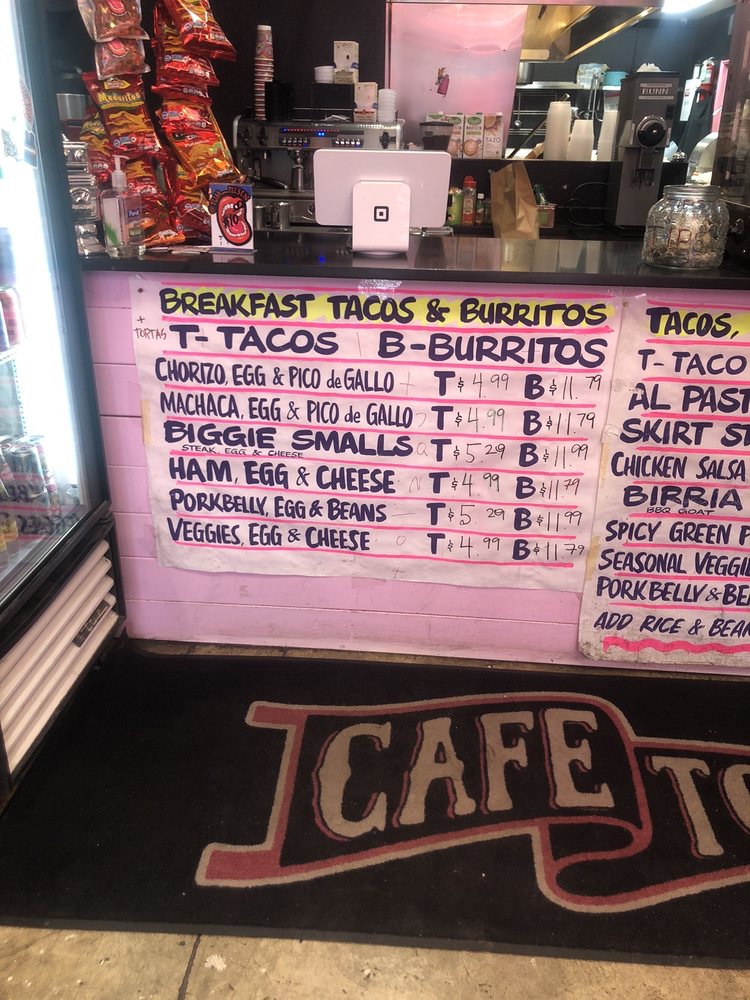 BUNN
Maduritos
BREAKFAST TACOS & BURRITOS
+ TORTAS
T- TACOS B-BURRITOS
CHORIZO, EGG & PICO de GALLO T $4.99 B $11.79
MACHACA, EGG & PICO de GALLO T $4.99 B $11.79
BIGGIE SMALLS T $5.29 B $11.99
STEAK, EGG & CHEESE
HAM, EGG & CHEESE T $4.99 B $11.79
PORKBELLY, EGG & BEANS T $5.29 B $11.99
VEGGIES, EGG & CHEESE T $4.99 B $11.79
TACOS,
T-TACO
AL PAST
SKIRT ST
CHICKEN SALSA
BIRRIA
BBQ GOAT
SPICY GREEN P
SEASONAL VEGGIE
PORKBELLY & BEA
ADD RICE & BEAN
CAFE TO